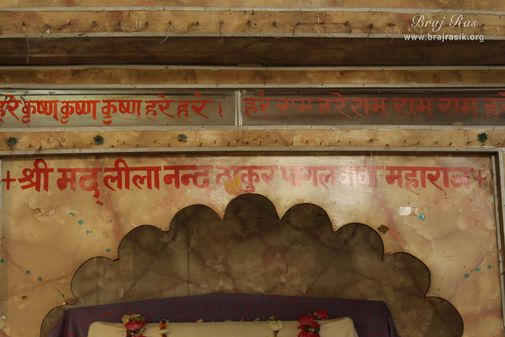 Braj Ras
www.brajrasik.org
हरे कृष्ण कृष्ण कृष्ण हरे हरे । हरे राम हरे राम राम राम हरे
+ श्री मद् लीला नन्द ठाकुर पागल बाबा महाराज +